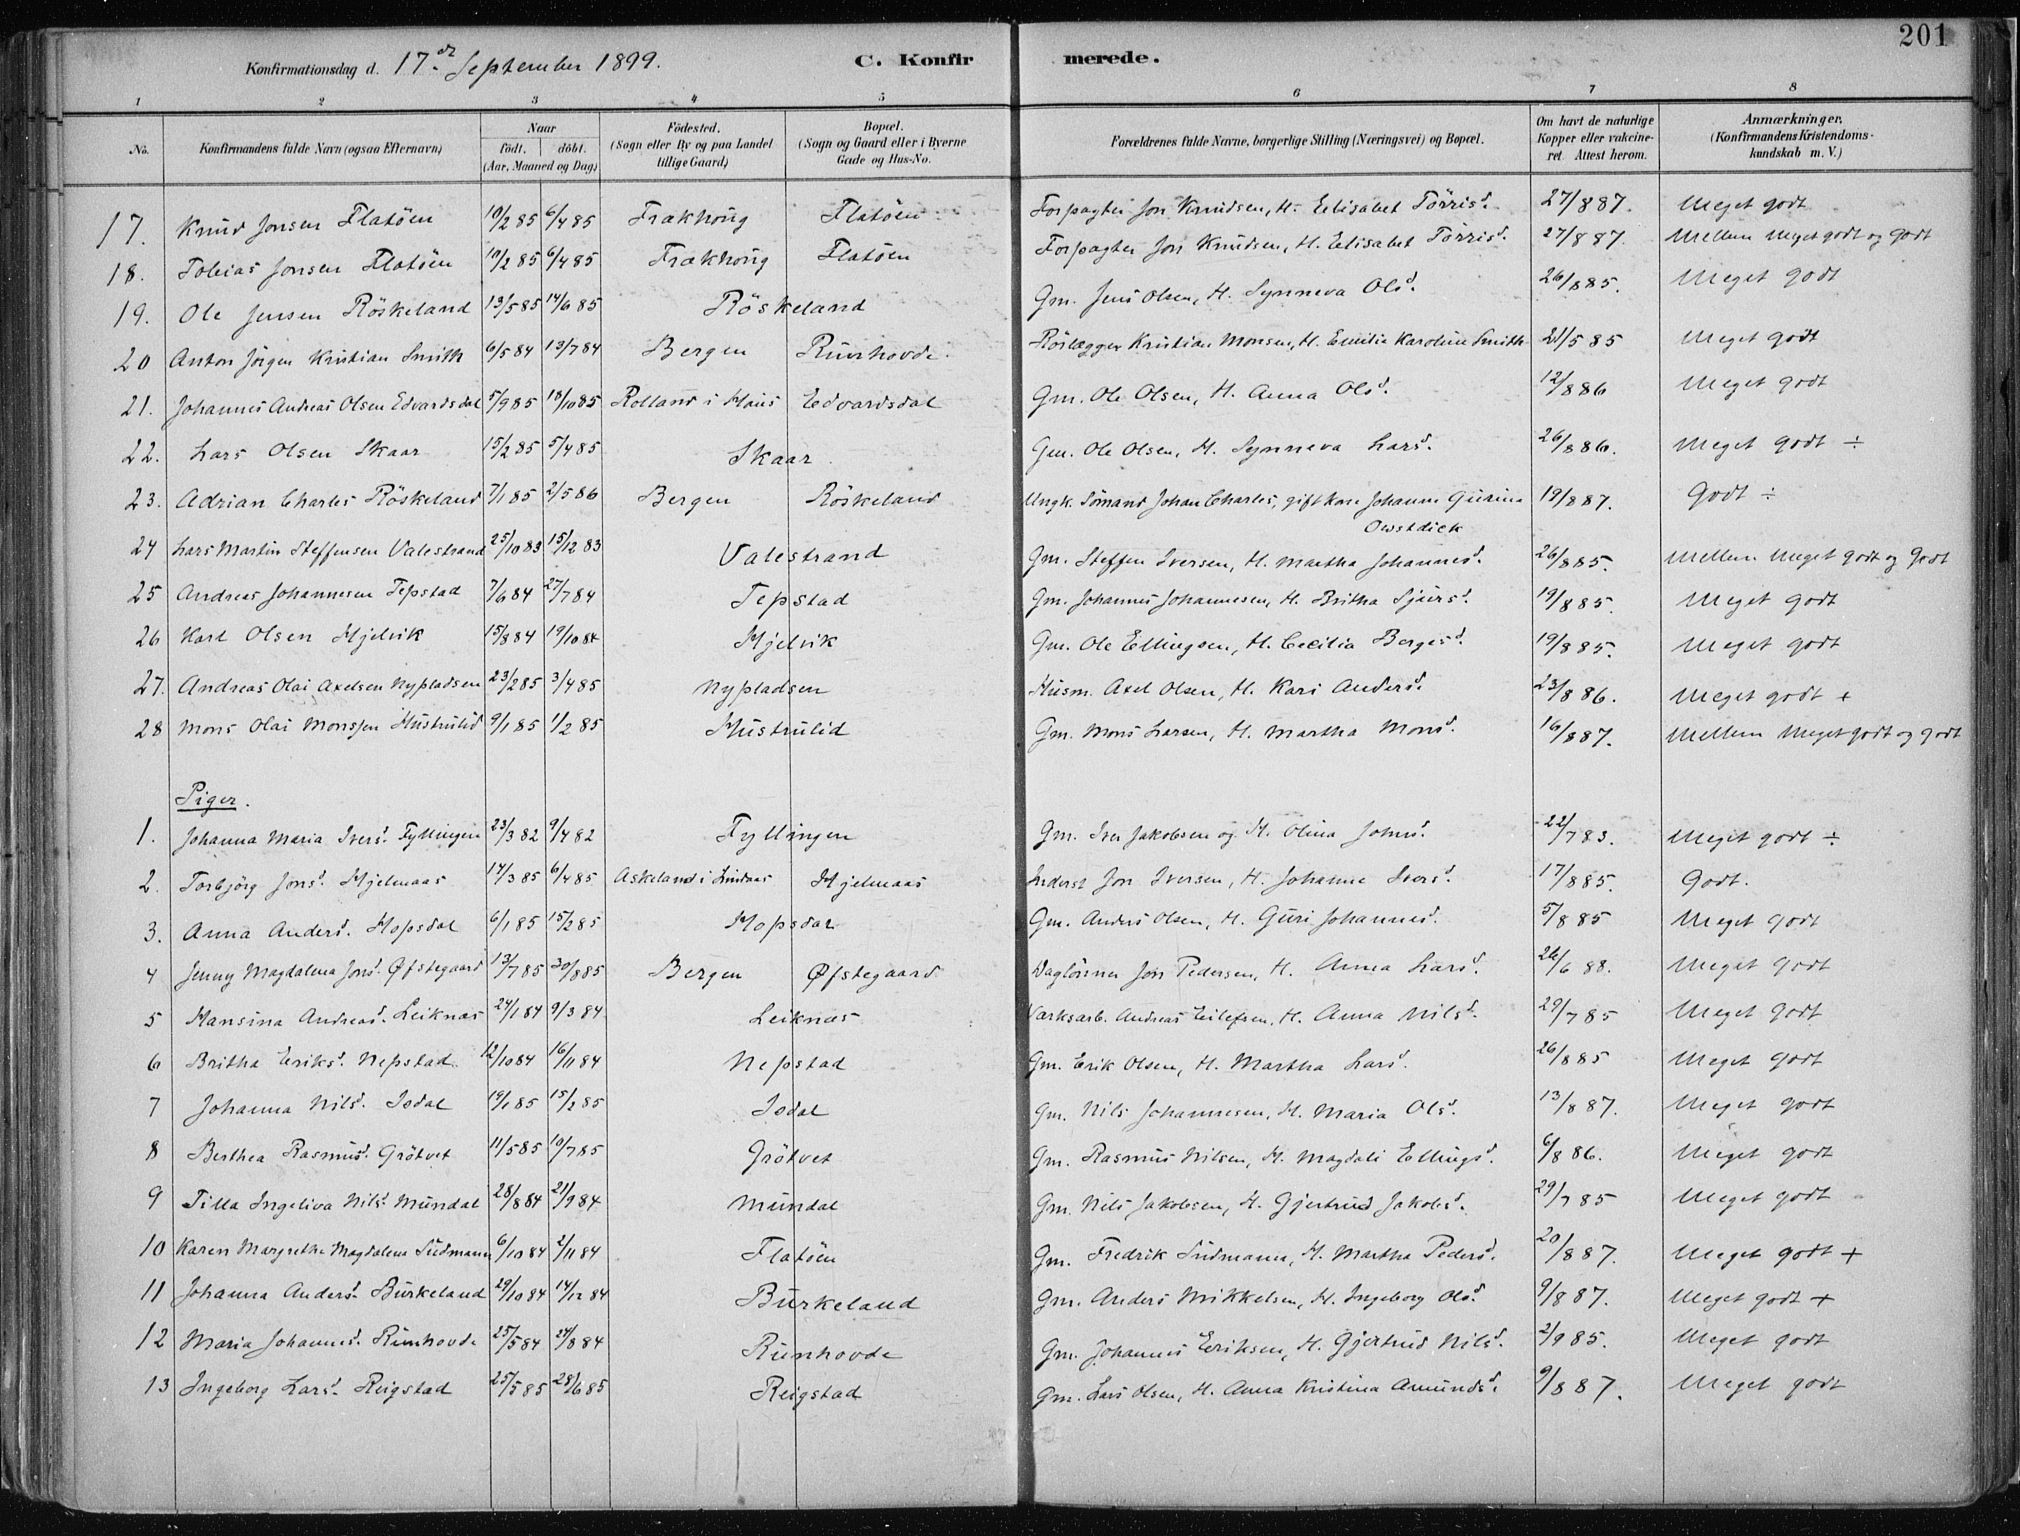 201
Konfirmationsdag d. 17de September 1899. C. Konfirmerede.
1 2 3 4 5 6 7 8
No. Konfirmandens fulde Navn (ogsaa Efternavn) Naar født. døbt. (Aar, Maaned og Dag) Fødested. (Sogn eller By og paa Landet tillige Gaard) Bopæl. (Sogn og Gaard eller i Byerne Gade og Hus-No. Forældrenes fulde Navne, borgerlige Stilling (Næringsvei) og Bopæl. Om havt de naturlige Kopper eller vakcineret. Attest herom. Anmærkninger. (Konfirmandens Kristendomskundskab m. V.)
17. Knud Jonsen Flatöen 10/2 85 6/4 85 Frækhoug Flatöen Forpagter Jon Knudsen, H. Elisabet Törrisd. 27/8 87. Meget godt
18. Tobias Jonsen Flatöen 10/2 85 6/4 85 Frækhoug Flatöen Forpagter Jon Knudsen, H. Elisabet Törrisd. 27/8 87. Mellem Meget godt og Godt
19. Ole Jensen Röskeland 13/5 85 14/6 85 Röskeland Gm. Jens Olsen, H. Synneva Olsd. 26/8 85. Meget godt
20 Anton Jörgen Kristian Smith 6/5 84 13/7 84 Bergen Runhovde. Kristian Monsen, H. Emilie Karoline Smith 21/5 85 Meget godt
21. Johannes Andreas Olsen Edvardsdal 5/9 85 18/10 85 Rolland i Haus Edvardsdal Gm. Ole Olsen, H. Anna Olsd. 12/8 86 Meget godt
22. Lars Olsen Skaar 15/2 85 5/4 85 Skaar Gm. Ole Olsen, H. Synneva Larsd. 26/8 86. Meget godt ÷
23. Adrian Charles Röskeland 7/1 85 2/5 86 Bergen Röskeland Ungk. Sömand Johan Charles, gift Kone Johanne Gurina Owstdiek 19/8 87. Godt ÷
24 Lars Martin Steffensen Valestrand 25/10 83 15/12 83 Valestrand Gm. Steffen Iversen, H. Martha Johannesd. 26/8 85. Mellem Meget godt og Godt
25 Andreas Johannesen Tepstad 7/6 84 27/7 84 Tepstad Gm. Johannes Johannesen, H. Britha Sjursd. 19/8 85. Meget godt
26 Karl Olsen Hjelvik 15/8 84 19/10 84 Hjelvik Gm. Ole Ellingsen, H. Cecilia Bergesd. 19/8 85. Meget godt
27. Andreas Olai Axelsen Nypladsen 23/2 85 3/4 85 Nypladsen Husm. Axel Olsen, H. Kari Andersd. 23/8 86. Meget godt +
28 Mons Olai Monssen Hustrulid 9/1 85 1/2 85 Hustrulid Gm. Mons Larsen, H. Martha Monsd. 16/8 87. Mellem Meget godt og godt
Piger.
1. Johanna Maria Iversd. Fyllingen 23/3 82 9/4 82 Fyllingen Gm. Iver Jakobsen og H. Olina Johnsd. 22/7 83. Meget godt ÷
2. Torbjörg Jonsd. Hjelmaas 14/3 85 6/4 85 Askeland i Lindaas Hjelmaas Inderst Jon Iversen, H. Johanne Iversd. 17/8 85. Godt.
3. Anna Andersd. Hopsdal 6/1 85 15/2 85 Hopsdal Gm. Anders Olsen, H. Guri Johannesd. 5/8 85 Meget godt
4 Jenny Magdalena Jonsd. Øfstegaard 13/7 85 30/8 85 Bergen Øfstegaard Daglönner Jon Pedersen, H. Anna Larsd. 26/6 88. Meget godt
5 Hansina Andreasd. Leiknes 24/1 84 9/3 84 Leiknes Værksarb. Andreas Eilefsen, H. Anna Nilsd. 29/7 85 Meget godt
6 Britha Eriksd. Nepstad 12/10 84 16/11 84 Nepstad Gm. Erik Olsen, H. Martha Larsd. 26/8 85 Meget godt
7 Johanna Nilsd. Isdal 19/1 85 15/2 85 Isdal Gm. Nils Johannesen, H. Maria Olsd. 13/8 87. Meget godt
8 Berthea Rasmusd. Grötvet 11/5 85 19/7 85 Grötvet Gm. Rasmus Nilsen, H. Magdali Ellingsd. 6/8 86. Meget godt
9 Tilla Ingeliva Nilsd. Mundal 28/8 84 21/9 84 Mundal Gm. Nils Jakobsen, H. Gjertrud Jakobsd. 29/7 85 Meget godt
10 Karen Margrethe Magdalena Südmann 6/10 84 2/11 84 Flatöen Gm. Fredrik Südmann, H. Martha Pedersd. 20/8 87. Meget godt +
11 Johanna Andersd. Burkeland 29/10 84 14/12 84 Burkeland Gm. Anders Mikkelsen, H. Ingeborg Olsd. 9/8 87. Meget godt +
12 Maria Johannesd. Runhovde 25/5 84 24/8 84 Runhovde Gm. Johannes Eriksen, H. Gjertrud Nilsd. 2/9 85. Meget godt
13 Ingeborg Larsd. Reigstad 25/5 85 28/6 85 Reigstad Gm. Lars Olsen, H. Anna Kristina Amundsd. 9/8 87. Meget godt